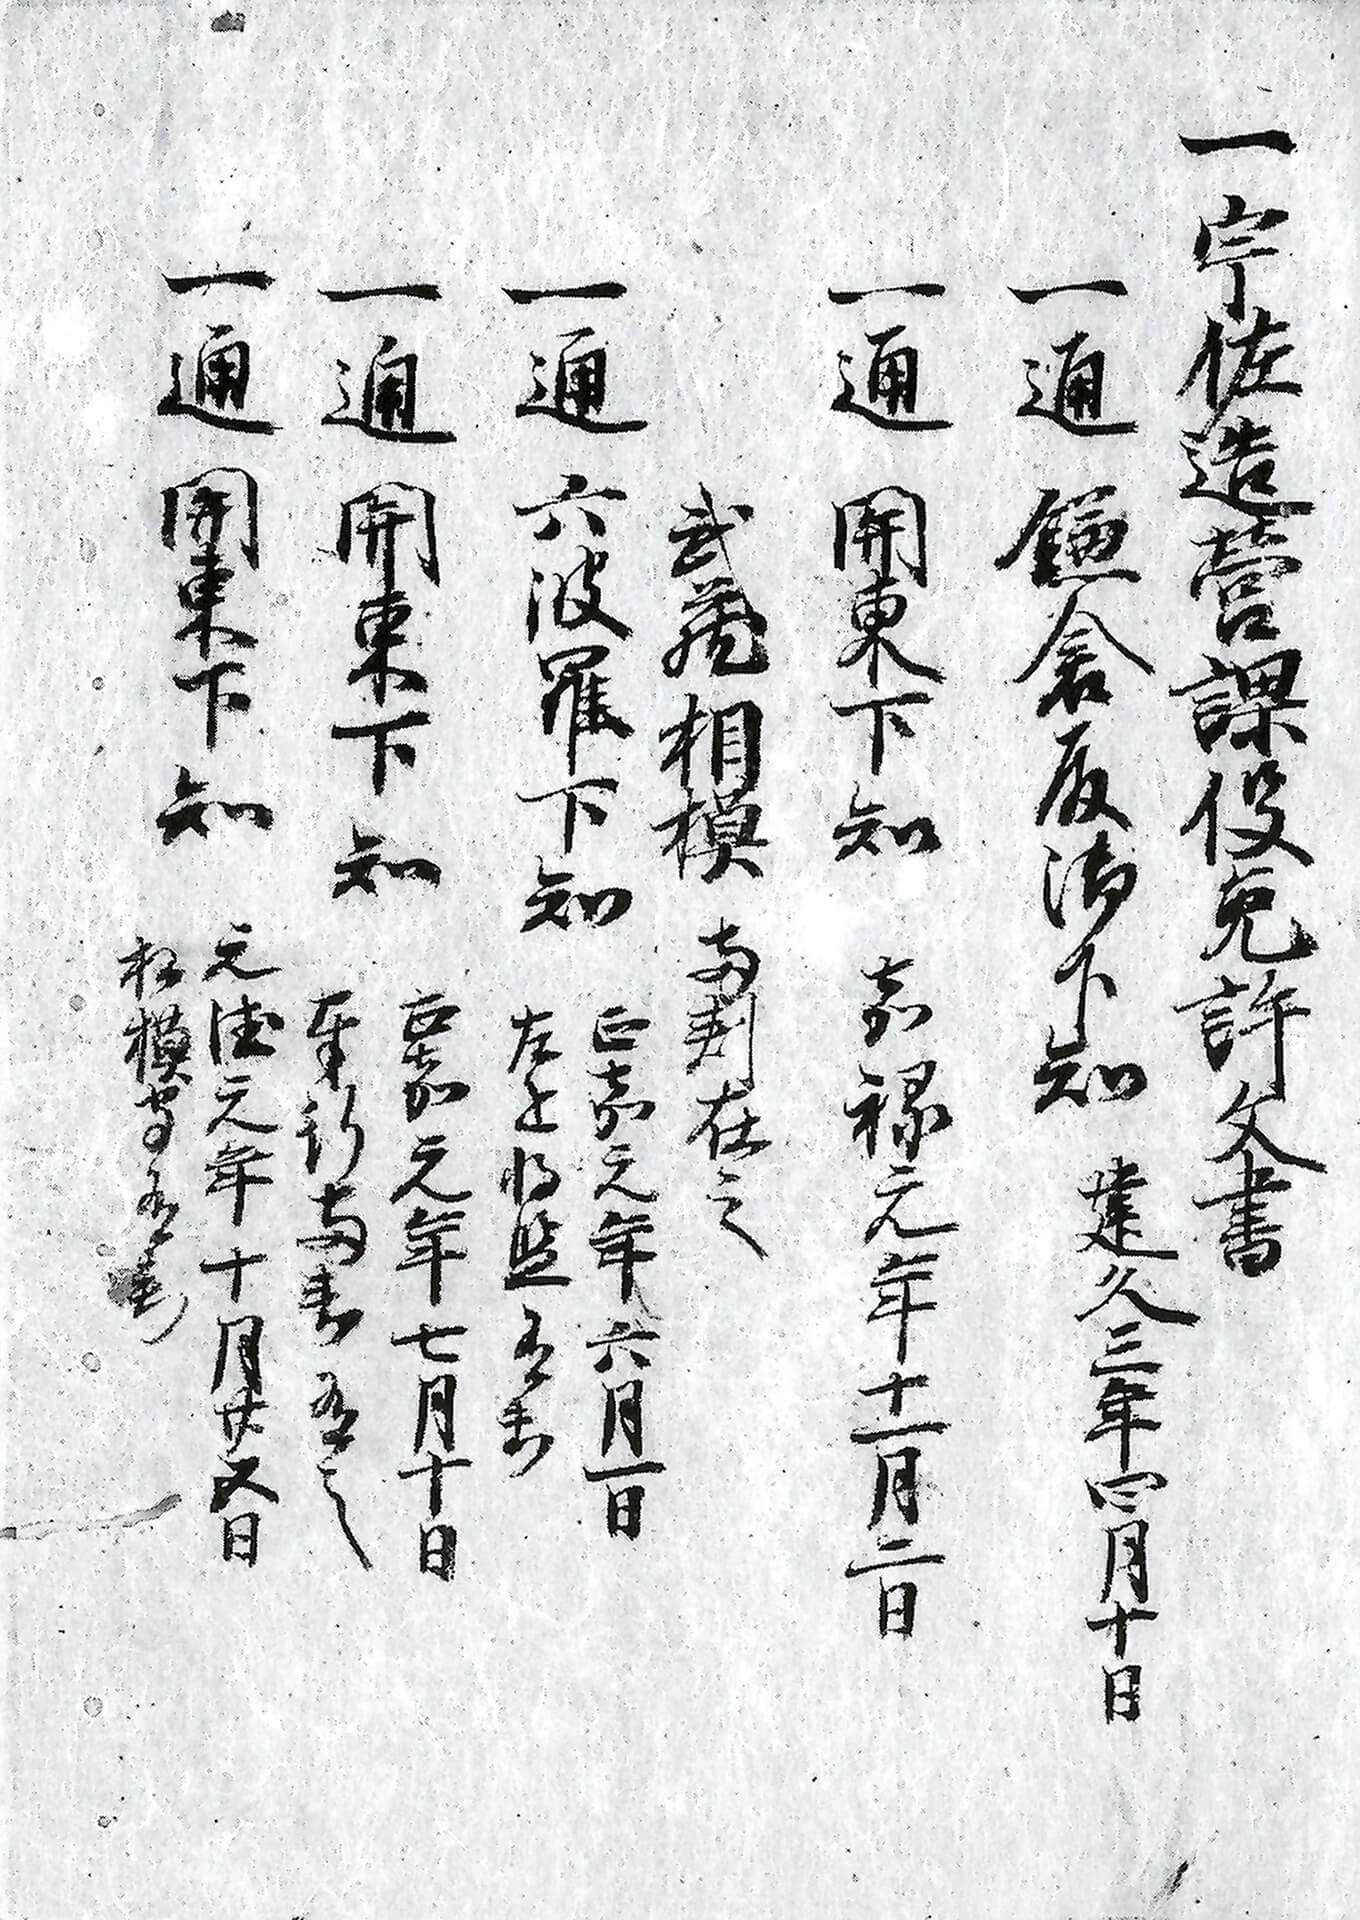 一宇佐造営課役免許文書
一通鎌倉殿御下知 建久三年四月十日
一通関東下知 嘉禄元年十一月二日
武蔵相模両判在之
一通六波羅下知 正嘉元年六月一日
左近将監在判
一通関東下知 正嘉元年七月十日
奉行両判在之
一通関東下知 元徳元年十月廿五日
相模守在判